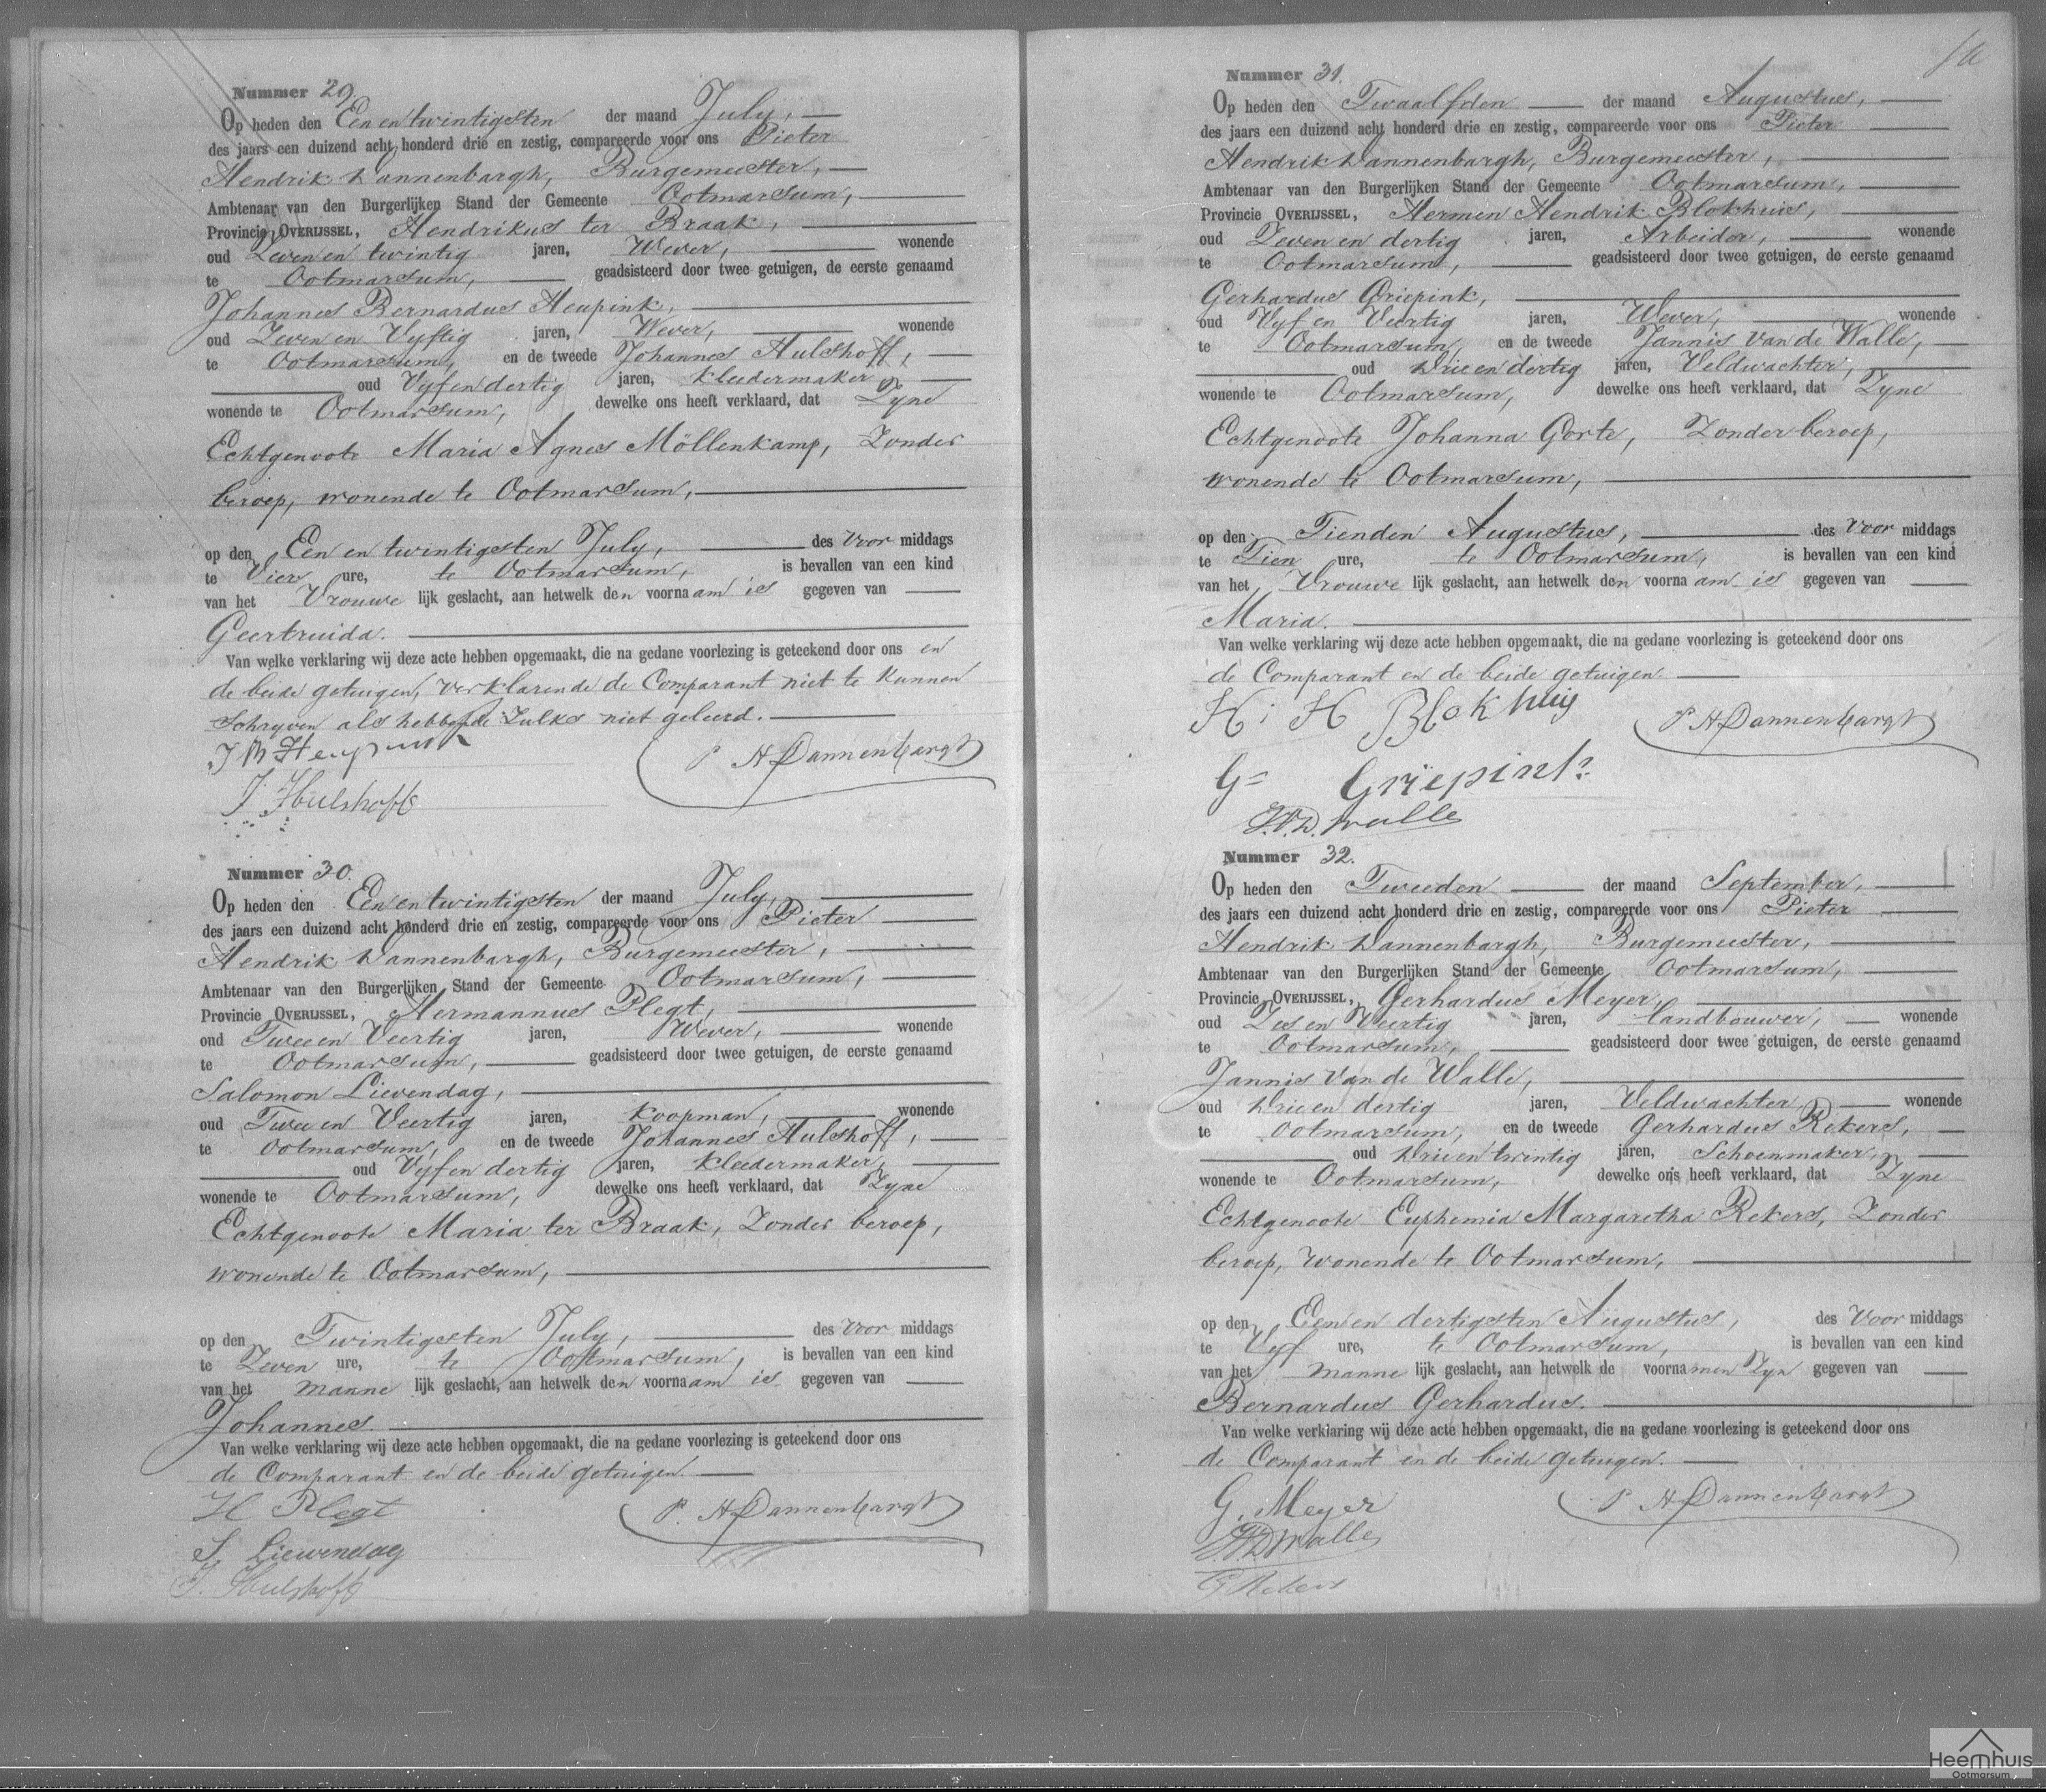 Nummer 29.
Op heden den Een en twintigsten der maand July,
des jaars een duizend acht honderd drie en zestig, compareerde voor ons Pieter
Hendrik Dannenbargh, Burgemeester,
Ambtenaar van den Burgerlijken Stand der Gemeente Ootmarsum,
Provincie OVERIJSSEL, Hendrikus ter Braak,
oud Zeven en twintig jaren, Wever, wonende
te Ootmarsum, geadsisteerd door twee getuigen, de eerste genaamd
Johannes Bernardus Heupink,
oud Zeven en Vyftig jaren, Wever, wonende
te Ootmarsum, en de tweede Johannes Hulshoff,
oud Vyf en dertig jaren, Kleedermaker
wonende te Ootmarsum, dewelke ons heeft verklaard, dat Zyne
Echtgenoote Maria Agnes Möllenkamp, Zonder
beroep, wonende te Ootmarsum,
op den Een en twintigsten July, des Voor middags
te Vier ure, te Ootmarsum, is bevallen van een kind
van het Vrouwe lijk geslacht, aan hetwelk den voornaam is gegeven van
Geertruida.
Van welke verklaring wij deze acte hebben opgemaakt, die na gedane voorlezing is geteekend door ons en
de beide getuigen, verklarende de Comparant niet te kunnen
Schryven als hebbende Zulks niet geleerd.
J B Heupink
P H Dannenbargh
J Hulshoff
Nummer 30.
Op heden den Een en twintigsten der maand July,
des jaars een duizend acht honderd drie en zestig, compareerde voor ons Pieter
Hendrik Dannenbargh, Burgemeester,
Ambtenaar van den Burgerlijken Stand der Gemeente Ootmarsum,
Provincie OVERIJSSEL, Hermannus Plegt,
oud Twee en Veertig jaren, Wever, wonende
te Ootmarsum, geadsisteerd door twee getuigen, de eerste genaamd
Salomon Lievendag,
oud Twee en Veertig jaren, Koopman, wonende
te Ootmarsum, en de tweede Johannes Hulshoff,
oud Vyf en dertig jaren, Kleedermaker,
wonende te Ootmarsum, dewelke ons heeft verklaard, dat Zyne
Echtgenoote Maria ter Braak, Zonder beroep,
wonende te Ootmarsum,
op den Twintigsten July, des Voor middags
te Zeven ure, te Ootmarsum, is bevallen van een kind
van het Manne lijk geslacht, aan hetwelk den voornaam is gegeven van
Johannes.
Van welke verklaring wij deze acte hebben opgemaakt, die na gedane voorlezing is geteekend door ons
de Comparant en de beide getuigen.
H Plegt
P. H Dannenbargh
S Liewendag
J. Hulshoff
Nummer 31.
Op heden den Twaalfden der maand Augustus,
des jaars een duizend acht honderd drie en zestig, compareerde voor ons Pieter
Hendrik Dannenbargh, Burgemeester,
Ambtenaar van den Burgerlijken Stand der Gemeente Ootmarsum,
Provincie OVERIJSSEL, Hermen Hendrik Blokhuis,
oud Zeven en dertig jaren, Arbeider, wonende
te Ootmarsum, geadsisteerd door twee getuigen, de eerste genaamd
Gerhardus Griepink,
oud Vyf en Veertig jaren, Wever, wonende
te Ootmarsum, en de tweede Jannis van de Walle,
oud Drie en dertig jaren, Veldwachter,
wonende te Ootmarsum, dewelke ons heeft verklaard, dat Zyne
Echtgenoote Johanna Gorte, Zonder beroep,
wonende te Ootmarsum,
op den Tienden Augustus, des Voor middags
te Tien ure, te Ootmarsum, is bevallen van een kind
van het Vrouwe lijk geslacht, aan hetwelk den voornaam is gegeven van
Maria.
Van welke verklaring wij deze acte hebben opgemaakt, die na gedane voorlezing is geteekend door ons
de Comparant en de beide getuigen.
H: H Blokhuis
P H Dannenbargh
G= Griepink
J.V.D. Walle
Nummer 32.
Op heden den Tweeden der maand September,
des jaars een duizend acht honderd drie en zestig, compareerde voor ons Pieter
Hendrik Dannenbargh, Burgemeester,
Ambtenaar van den Burgerlijken Stand der Gemeente Ootmarsum,
Provincie OVERIJSSEL, Gerhardus Meyer,
oud Zes en Veertig jaren, Landbouwer, wonende
te Ootmarsum, geadsisteerd door twee getuigen, de eerste genaamd
Jannis van de Walle,
oud Drie en dertig jaren, Veldwachter, wonende
te Ootmarsum, en de tweede Gerhardus Rekers,
oud Drie en twintig jaren, Schoenmaker,
wonende te Ootmarsum, dewelke ons heeft verklaard, dat Zyne
Echtgenoote Euphemia Margaretha Rekers, Zonder
beroep, wonende te Ootmarsum,
op den Een en dertigsten Augustus, des Voor middags
te Vyf ure, te Ootmarsum, is bevallen van een kind
van het Manne lijk geslacht, aan hetwelk de voornamen Zyn gegeven van
Bernardus Gerhardus.
Van welke verklaring wij deze acte hebben opgemaakt, die na gedane voorlezing is geteekend door ons
de Comparant en de beide getuigen.
G. Meyer
P H Dannenbargh
JVD Walle
G Rekers
Heemhuis
Ootmarsum